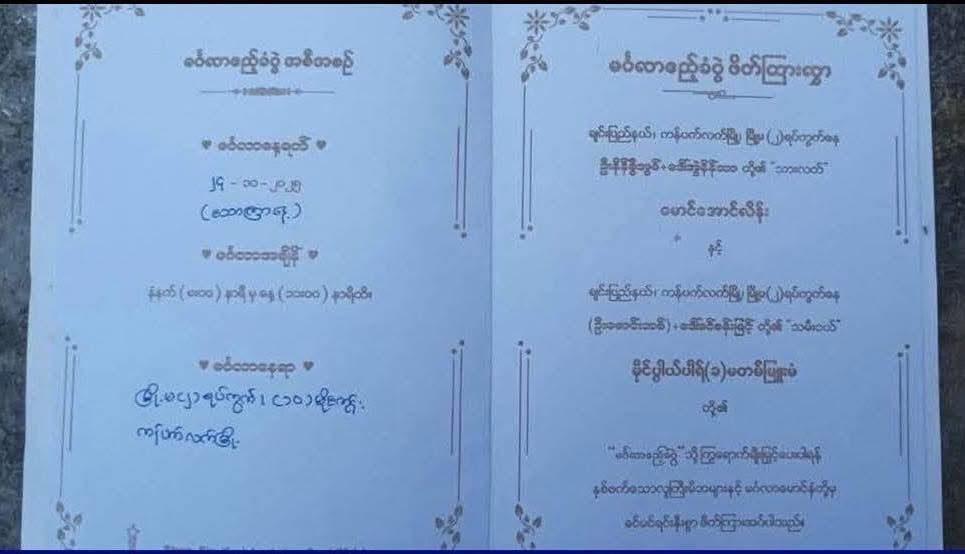 မင်္ဂလာဧည့်ခံပွဲ အစီအစဉ်
မင်္ဂလာနေ့ရက်
၂၄ - ၁၀ - ၂၀၂၅
(သောကြာနေ့)
မင်္ဂလာအချိန်
နံနက် (၈:၀၀) နာရီ မှ နေ့ (၁၁:၀၀) နာရီထိ။
မင်္ဂလာနေရာ
မြို့မ(၂)ရပ်ကွက်၊
ကန်ပက်လက်မြို့
မင်္ဂလာဧည့်ခံပွဲ ဖိတ်ကြားလွှာ
ချင်းပြည်နယ်၊ ကန်ပက်လက်မြို့၊ မြို့မ(၂)ရပ်ကွက်နေ
တို့၏ "သားလတ်"
မောင်အောင်လိန်း
နှင့်
ချင်းပြည်နယ်၊ ကန်ပက်လက်မြို့၊ မြို့မ(၂)ရပ်ကွက်နေ
တို့၏ "သမီးငယ်"
တို့၏
"မင်္ဂလာဧည့်ခံပွဲ" သို့ ကြွရောက်ချီးမြှင့်ပေးပါရန်
နှစ်ဖက်သောလူကြီးမိဘများနှင့် မင်္ဂလာမောင်နှံတို့မှ
ခင်မင်ရင်းနှီးစွာ ဖိတ်ကြားအပ်ပါသည်။